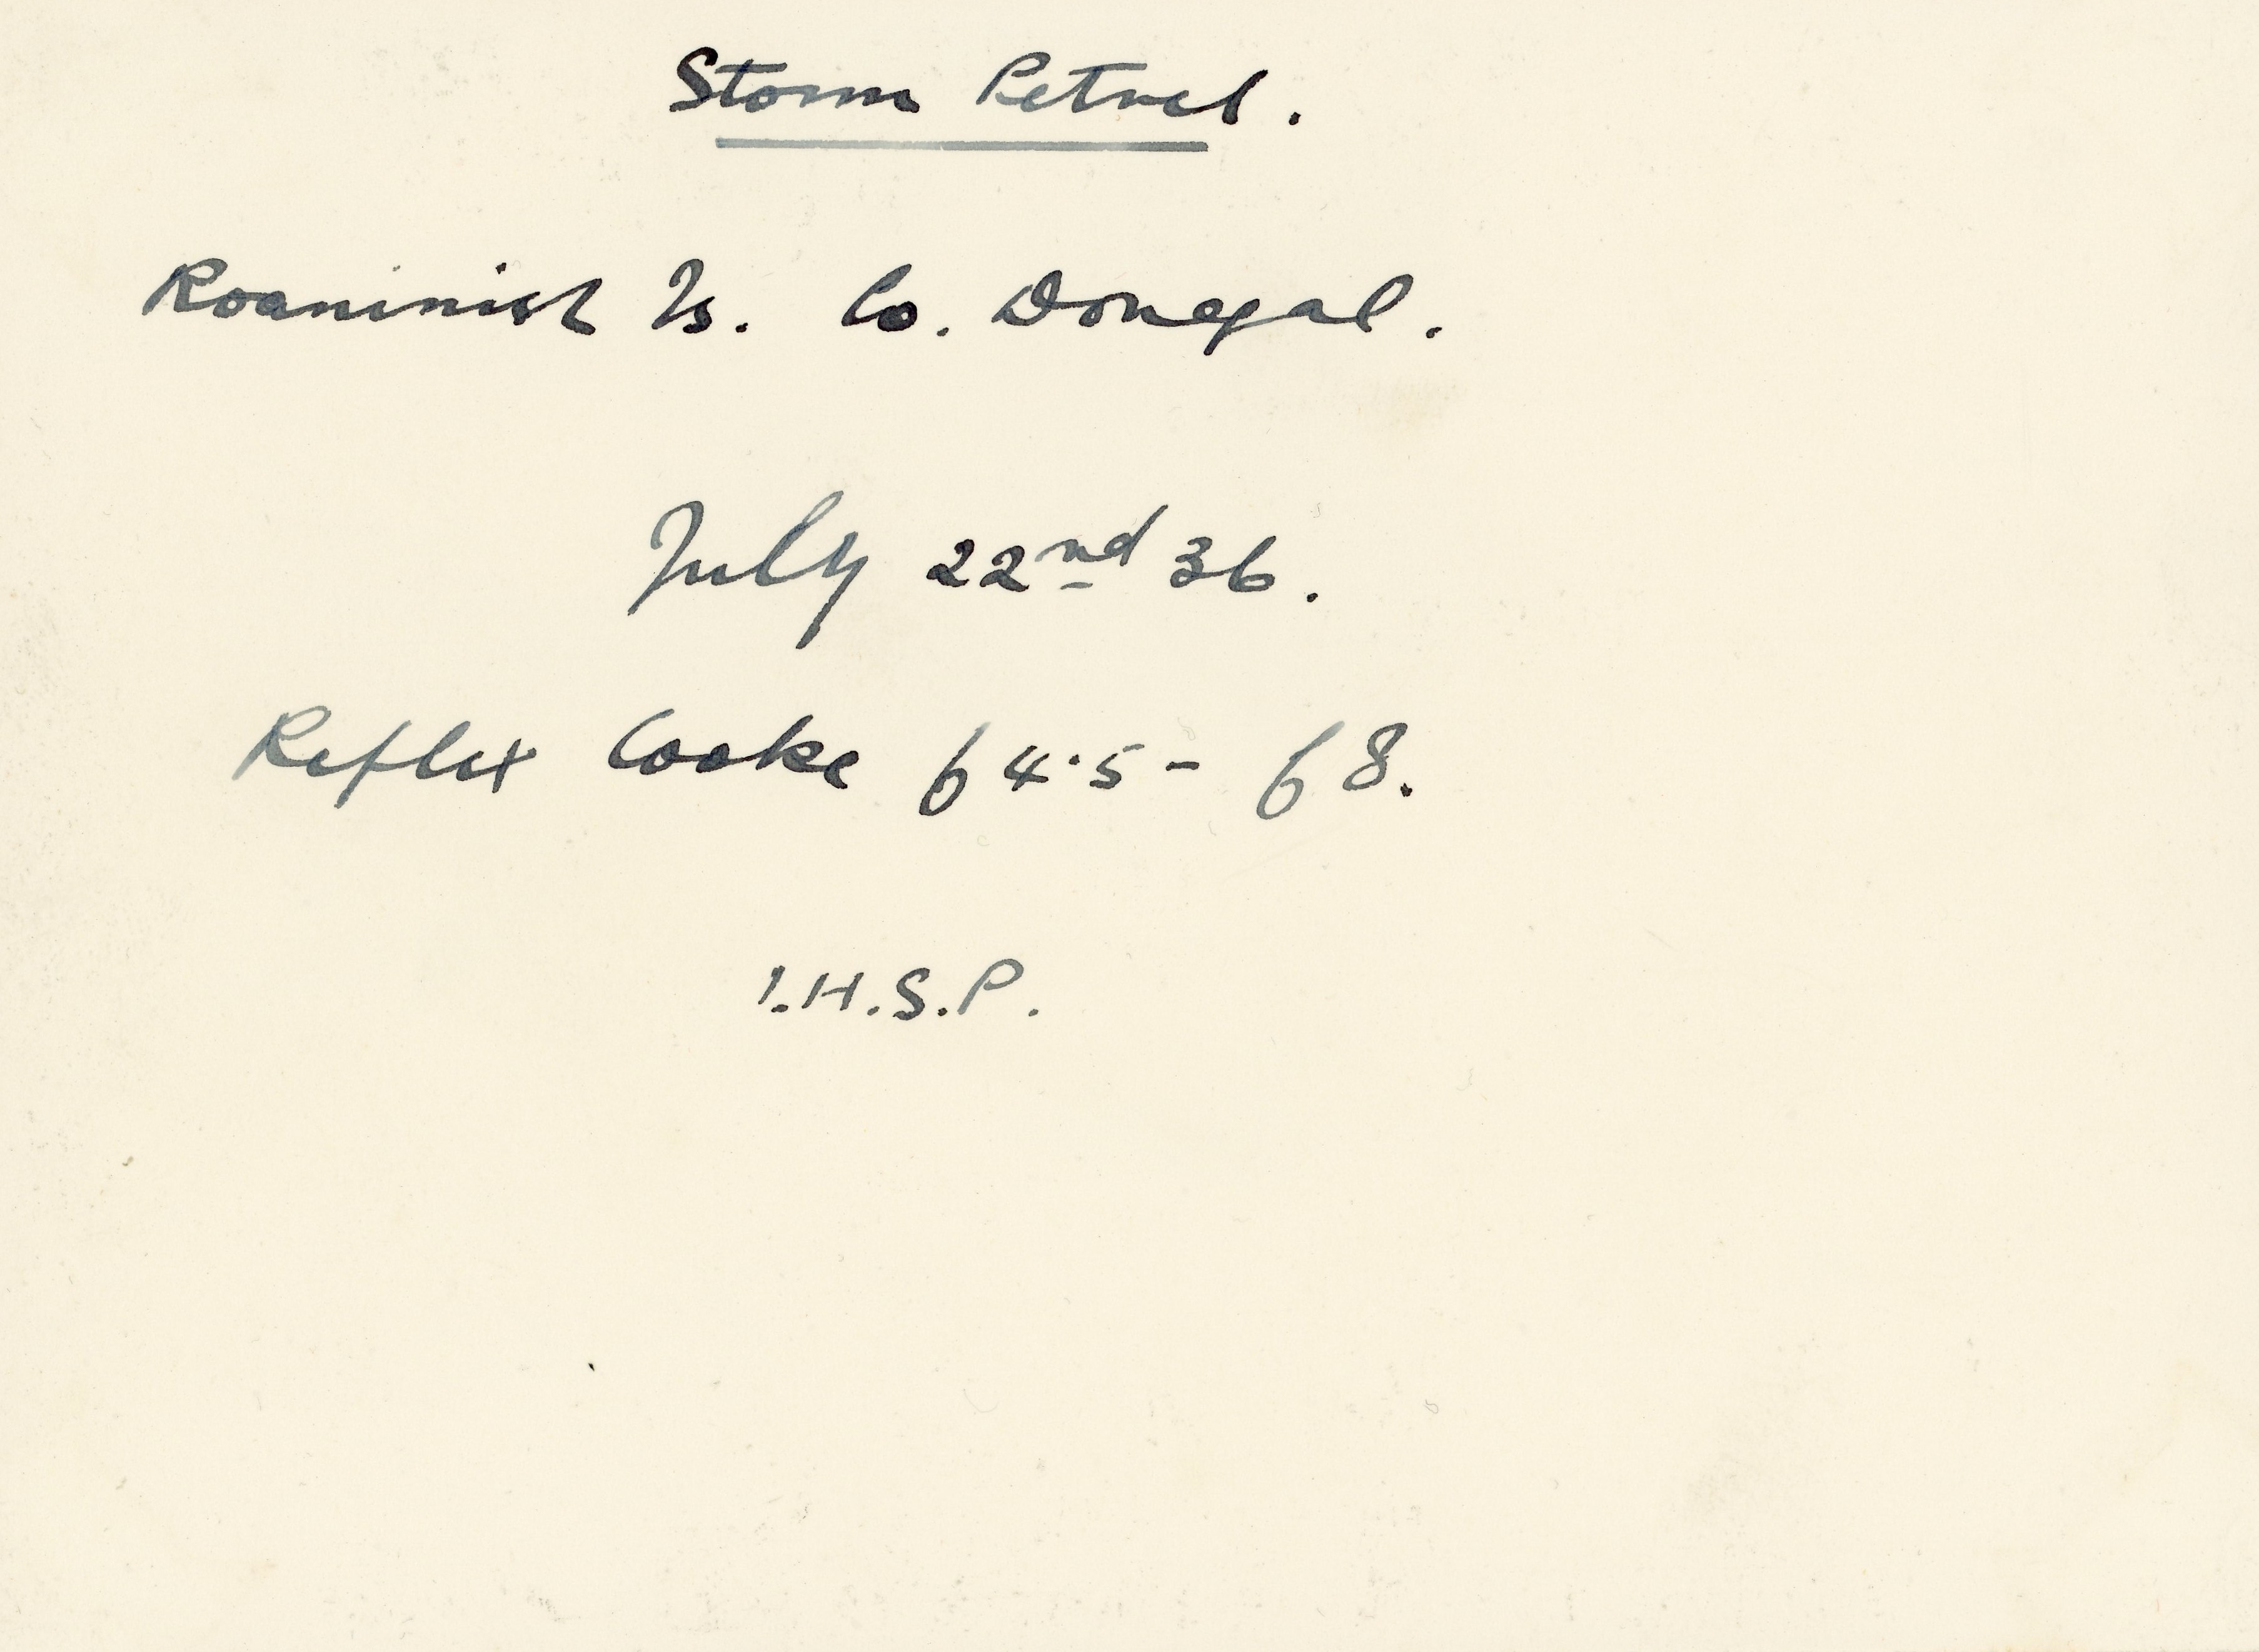 Storm Petrel.
Roaninish Is. Co. Donegal.
July 22nd 36.
Reflex Cooke f 4.5 - f 8.
I.H.S.P.